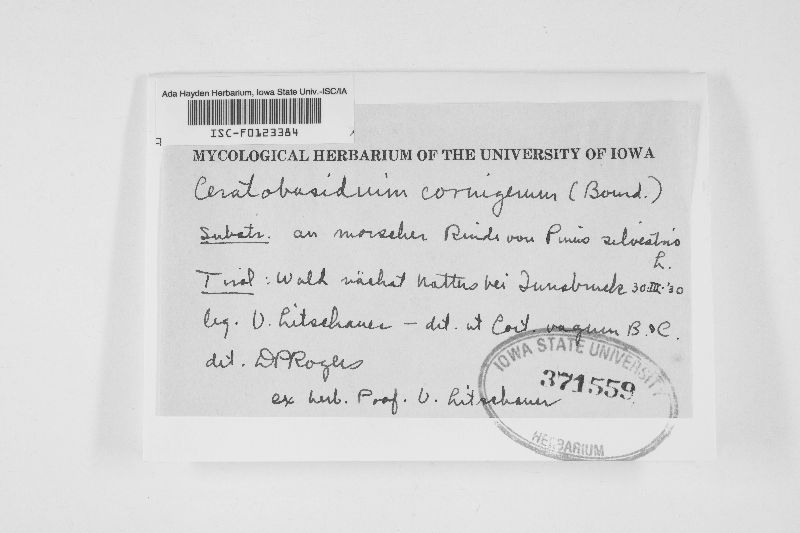 Ada Hayden Herbarium, Iowa State Univ.-ISC/IA
ISC-F0123384
MYCOLOGICAL HERBARIUM OF THE UNIVERSITY OF IOWA
Ceratobasidium cornigerum (Bourd.)
Substr. an morscher Rinde von Pinus silvestris
L.
Tirol: Wald nächst Natters bei Innsbruck 30.III.'30
leg. V. Litschauer — det. ut Cort. vagum B. & C.
det. DPRogers
ex herb. Prof. V. Litschauer
IOWA STATE UNIVERSITY
371559
HERBARIUM